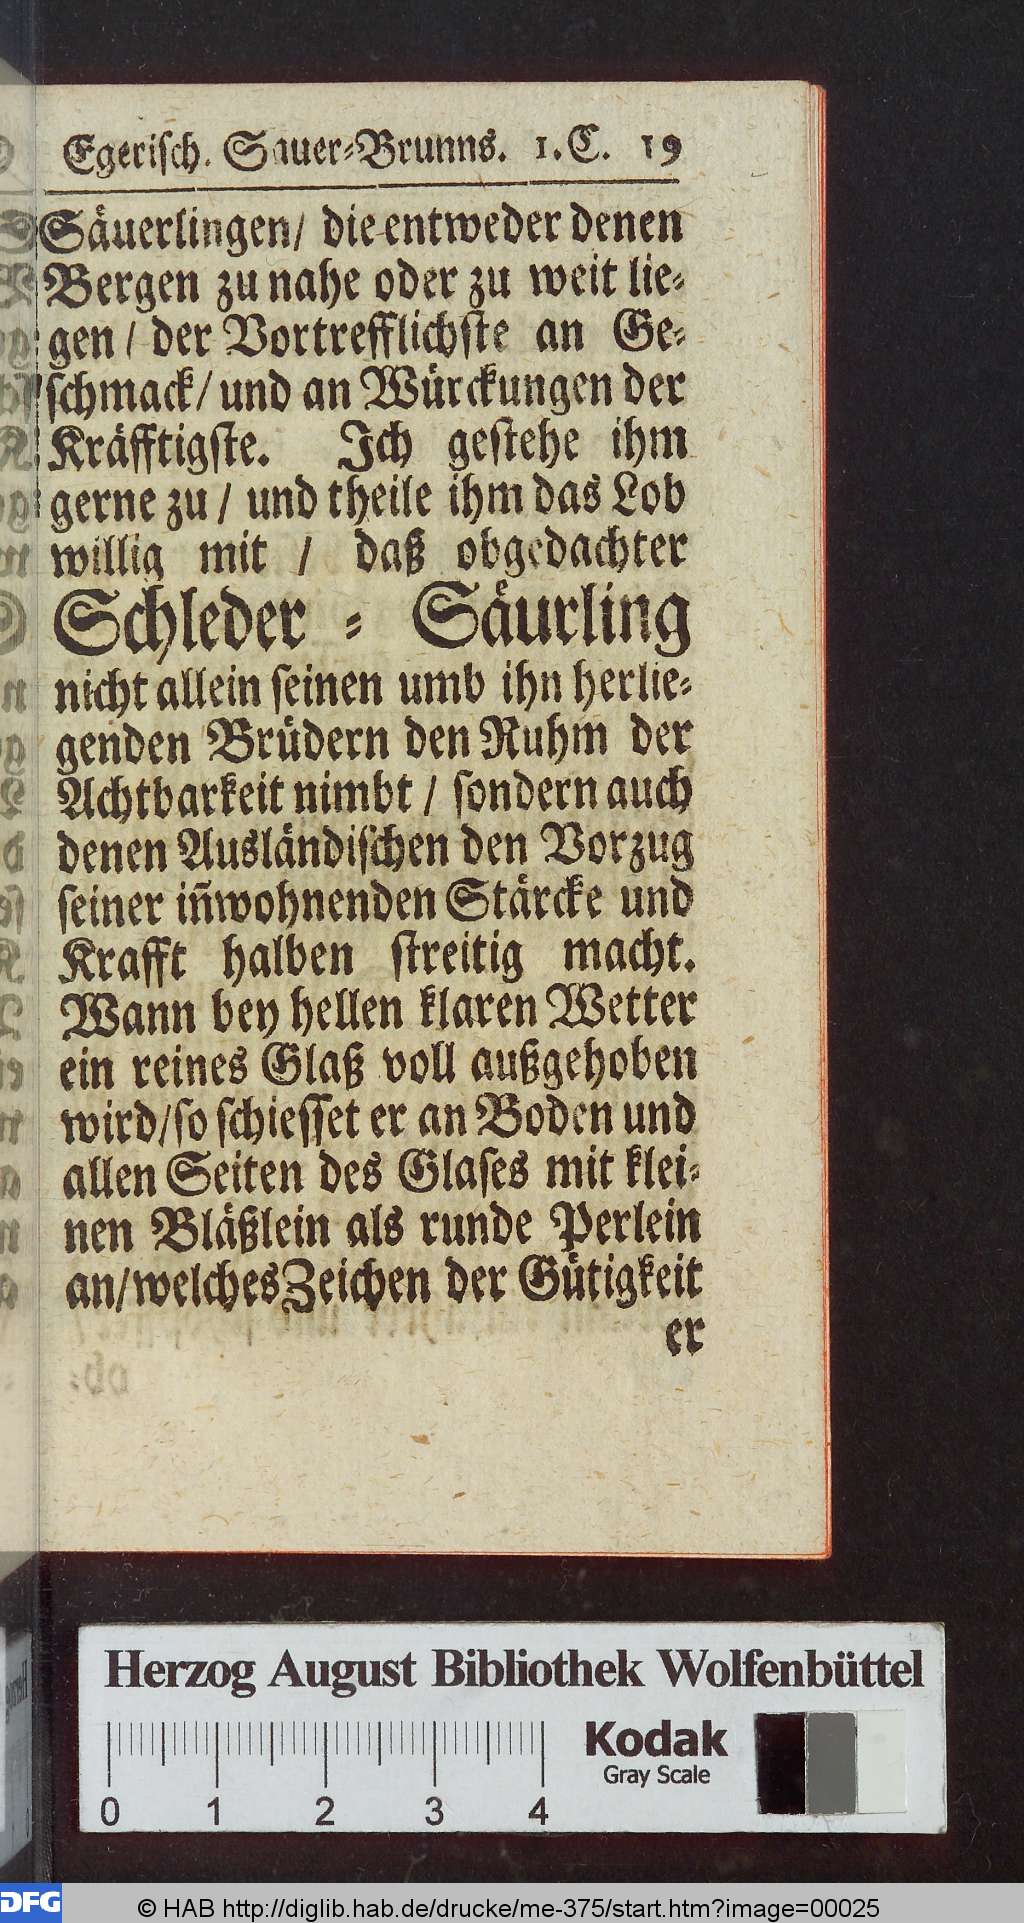 Egerisch. Sauer-Brunns. 1. C. 19
Säuerlingen/ die entweder denen
Bergen zu nahe oder zu weit lie-
gen / der Vortrefflichste an Ge-
schmack/ und an Würckungen der
Kräfftigste. Ich gestehe ihm
gerne zu / und theile ihm das Lob
willig mit / daß obgedachter
Schleder - Säurling
nicht allein seinen umb ihn herlie-
genden Brüdern den Ruhm der
Achtbarkeit nimbt / sondern auch
denen Ausländischen den Vorzug
seiner iñwohnenden Stärcke und
Krafft halben streitig macht.
Wann bey hellen klaren Wetter
ein reines Glaß voll außgehoben
wird/so schiesset er an Boden und
allen Seiten des Glases mit klei-
nen Bläßlein als runde Perlein
an/welches Zeichen der Gütigkeit
er
Herzog August Bibliothek Wolfenbüttel
Kodak
Gray Scale
0 1 2 3 4
DFG
© HAB http://diglib.hab.de/drucke/me-375/start.htm?image=00025